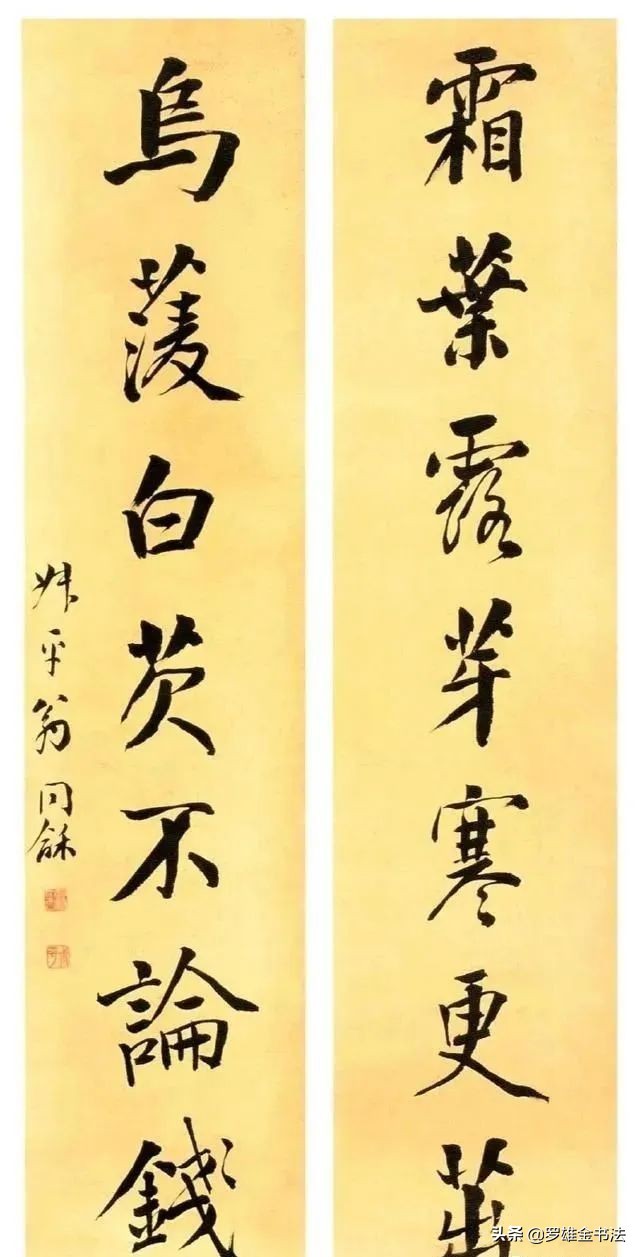 霜葉露芽寒更茁
烏蔆白芡不論錢
叔平翁同龢
头条 @罗雄金书法